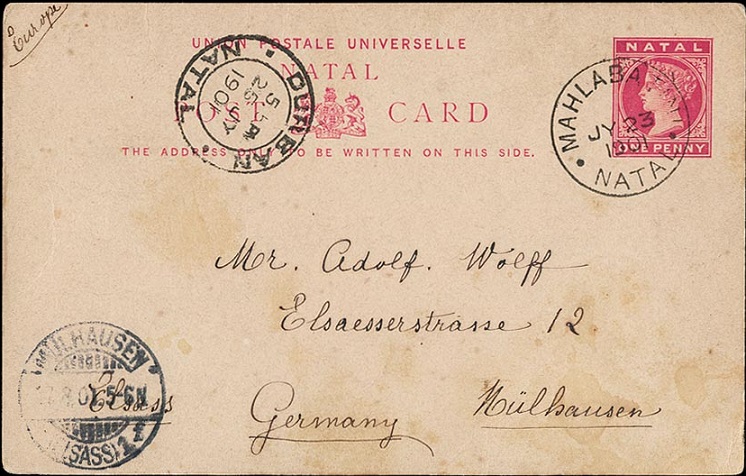 Europe
UNION POSTALE UNIVERSELLE
NATAL
POST CARD
THE ADDRESS ONLY TO BE WRITTEN ON THIS SIDE.
NATAL
ONE PENNY
MAHLABA
JY 23
1901
NATAL
DURBAN
5 A
JY 25
1901
NATAL
Mr. Adolf. Wolff
Elsaesserstrasse 12
Mülhausen
Elsass
Germany
MÜLHAUSEN
5-6N
(ELSASS)